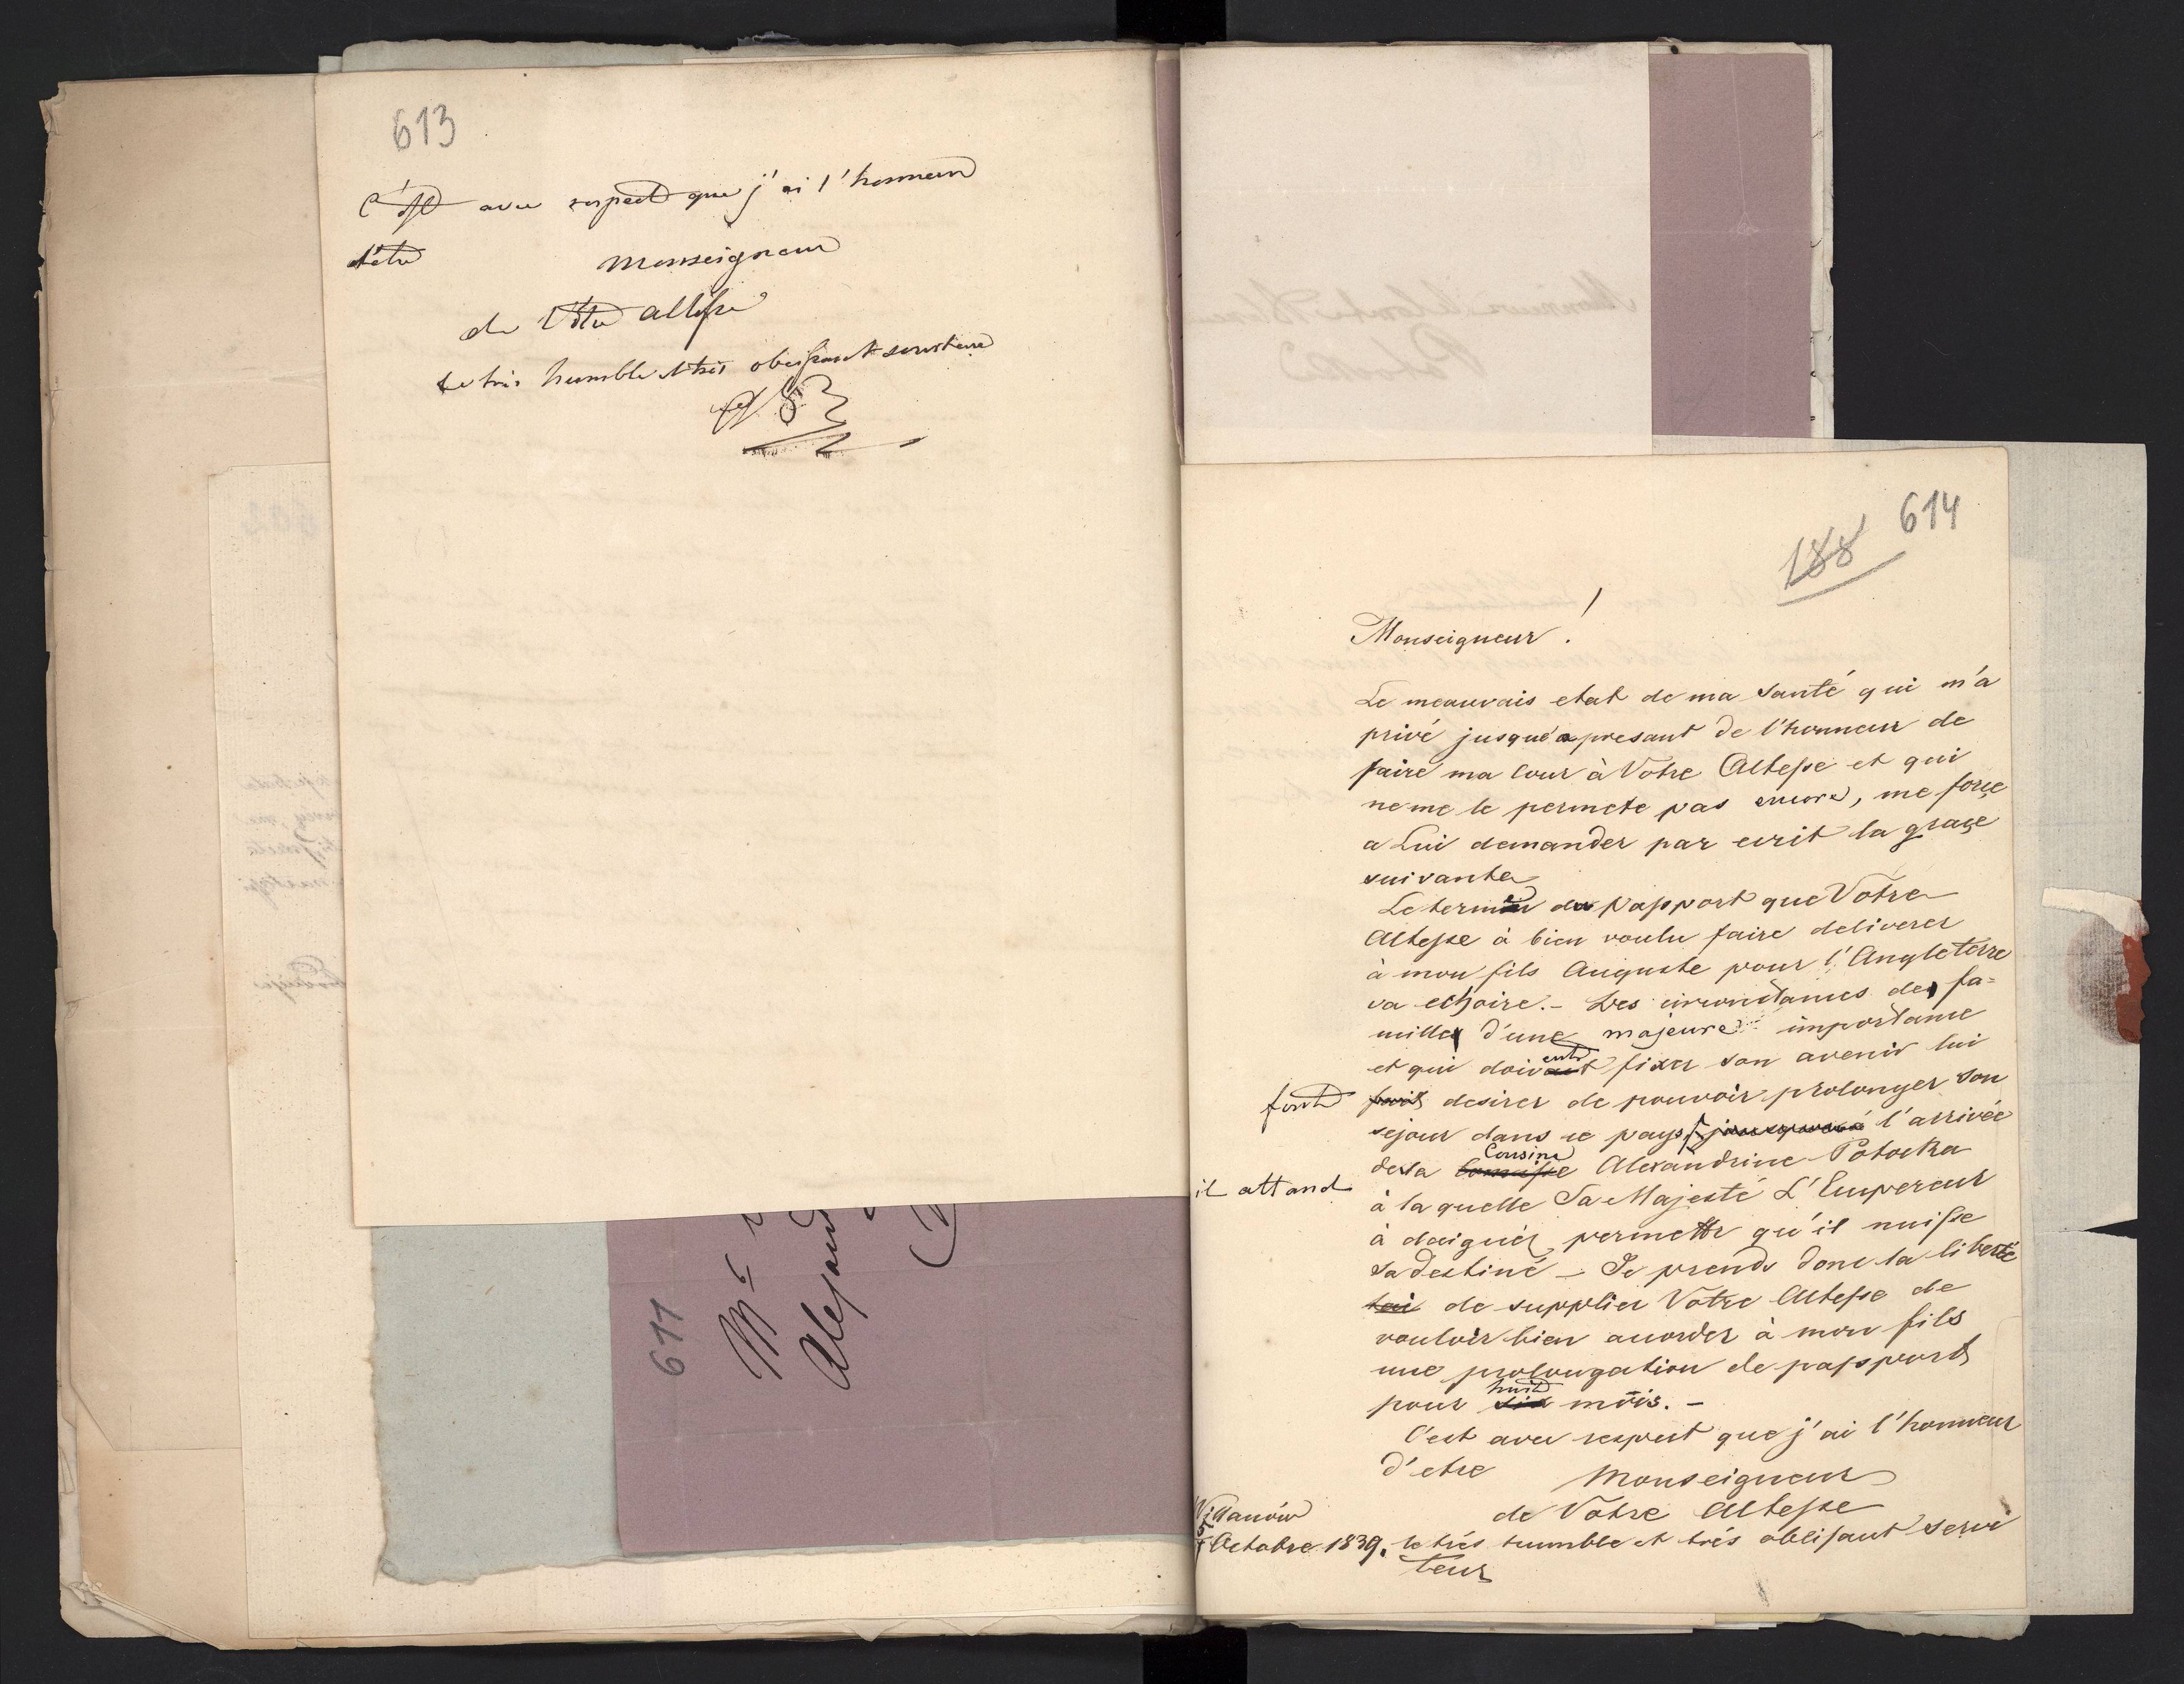 613
C'est avec respect que j'ai l'honneur
d'être Monseigneur
de Votre Altesse
le très humble et très obeissant serviteur
611
614
188
Monseigneur !
Le meauvais etat de ma santé qui m'a
privé jusqu'a presant de l'honneur de
faire ma Cour à Votre Altesse et qui
ne me le permete pas encore, me force
a Lui demander par ecrit la grace
suivante
Le terme du Passport que Votre
Altesse à bien voulu faire deliverer
à mon fils Auguste pour l'Angleterre
va echoire. - Des circonstances de fa=
mille d'une majeure importance
et qui doivent fixer son avenir lui
font fait desirer de pouvoir prolonger son
sejour dans ce pays, jusqu'a l'arrivée
de sa Cousine Alexandrine Potocka
il attand
à laquelle Sa Majesté L'Empereur
à daigner permettr qu'il nuisse
sa destiné - Je prends donc la liberté
de supplier Votre Altesse de
vouloir bien acorder à mon fils
une prolongation de passport
pour six huit mois. -
C'est avec respect que j'ai l'honneur
d'etre Monseigneur
de Votre Altesse
Willanów
5 Octobre 1839. le très humble et très obeissant servi
teur